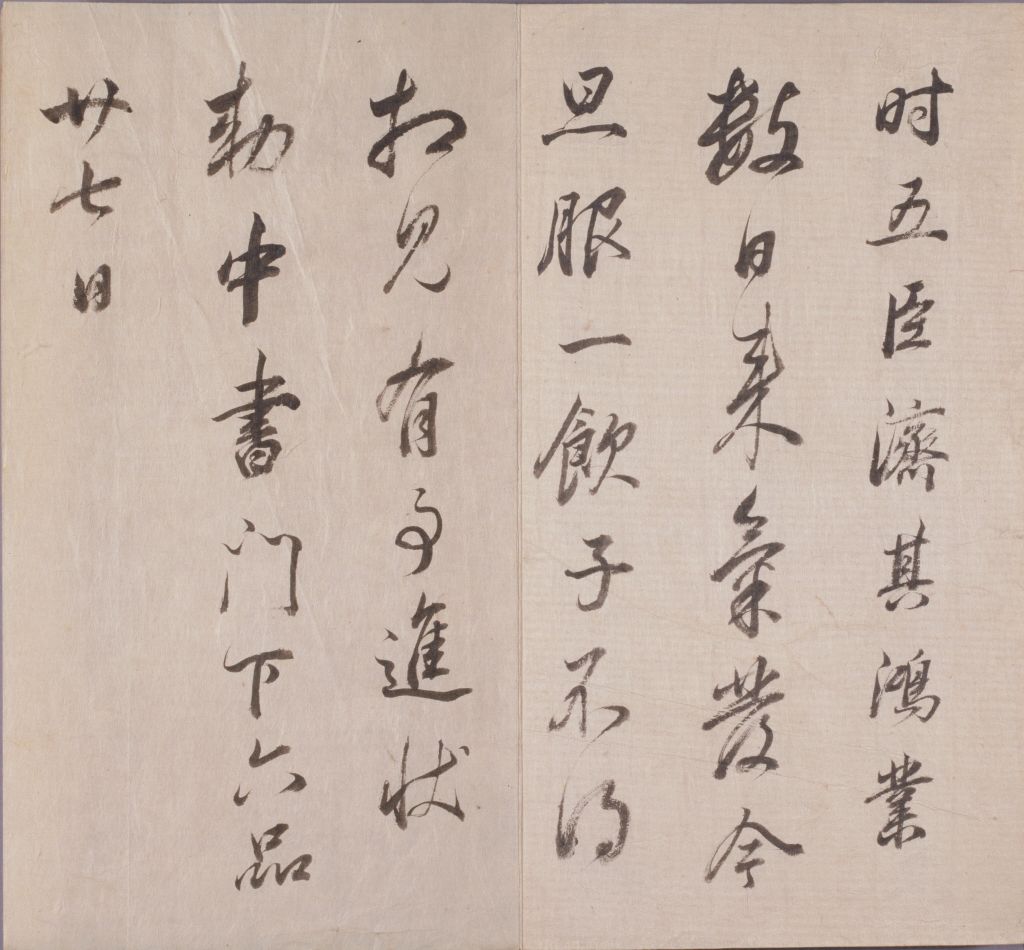 时五臣濟其鴻業
數日来氣發今
旦服一飲子不得
相見有事進狀
勅中書門下六品
廿七日